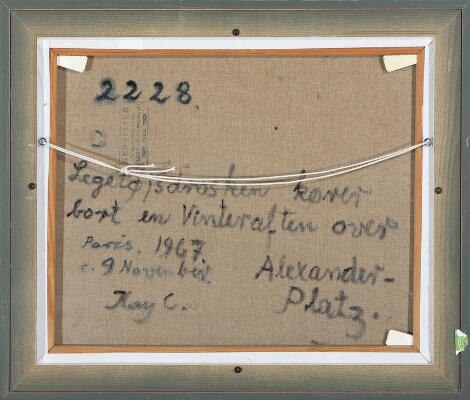 2228
kører
bort en Vinteraften over
Paris, 1967
c. 9 November.
Alexander-
Platz.
Kay C.